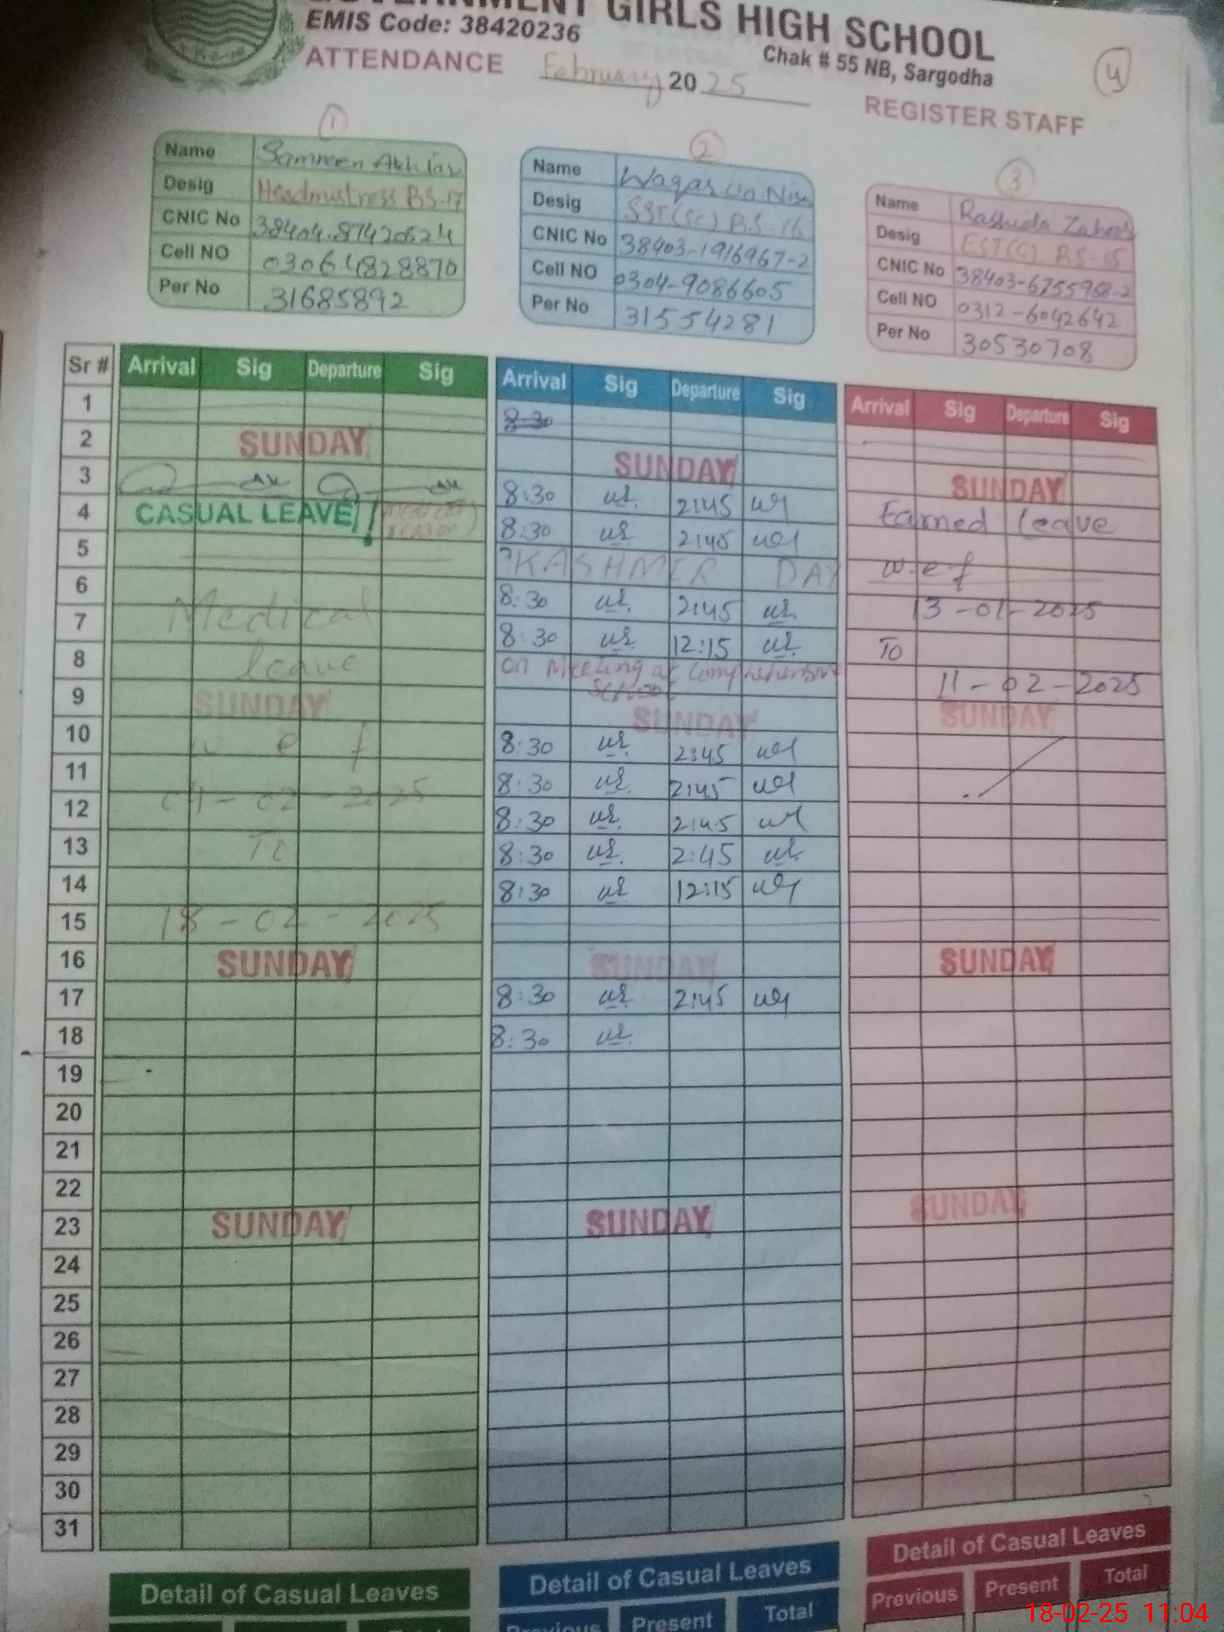 GIRLS HIGH SCHOOL
EMIS Code: 38420236
Chak # 55 NB, Sargodha
ATTENDANCE February 2025
REGISTER STAFF
4
1
Name Samreen Akhtar
Desig Headmistress BS-17
CNIC No
Cell NO 03064828870
Per No 31685892
2
Name Waqar Un Nisa
Desig SST(SC) BS-16
CNIC No 38403-1916967-2
Cell NO 0304-9086605
Per No 31554281
3
Name Rashida Zahoor
Desig EST(G) BS-15
CNIC No 38403-6755968-2
Cell NO 0312-6042642
Per No 30530708
Sr # Arrival Sig Departure Sig Arrival Sig Departure Sig Arrival Sig Departure Sig
1 8:30
2 SUNDAY SUNDAY SUNDAY
3 8:30 2:45
4 CASUAL LEAVE 8:30 2:45 Earned leave
5 KASHMIR DAY w.e.f
6 Medical 8:30 2:45 13-01-2025
7 8:30 12:15 To
8 leave on Meeting at comprehensive School 11-02-2025
9 SUNDAY SUNDAY SUNDAY
10 w e f 8:30 2:45
11 04-02-2025 8:30 2:45
12 8:30 2:45
13 To 8:30 2:45
14 8:30 12:15
15 18-02-2025
16 SUNDAY SUNDAY SUNDAY
17 8:30 2:45
18 8:30
19
20
21
22
23 SUNDAY SUNDAY SUNDAY
24
25
26
27
28
29
30
31
Detail of Casual Leaves Detail of Casual Leaves Detail of Casual Leaves
Previous Present Total Previous Present Total
18-02-25 11:04